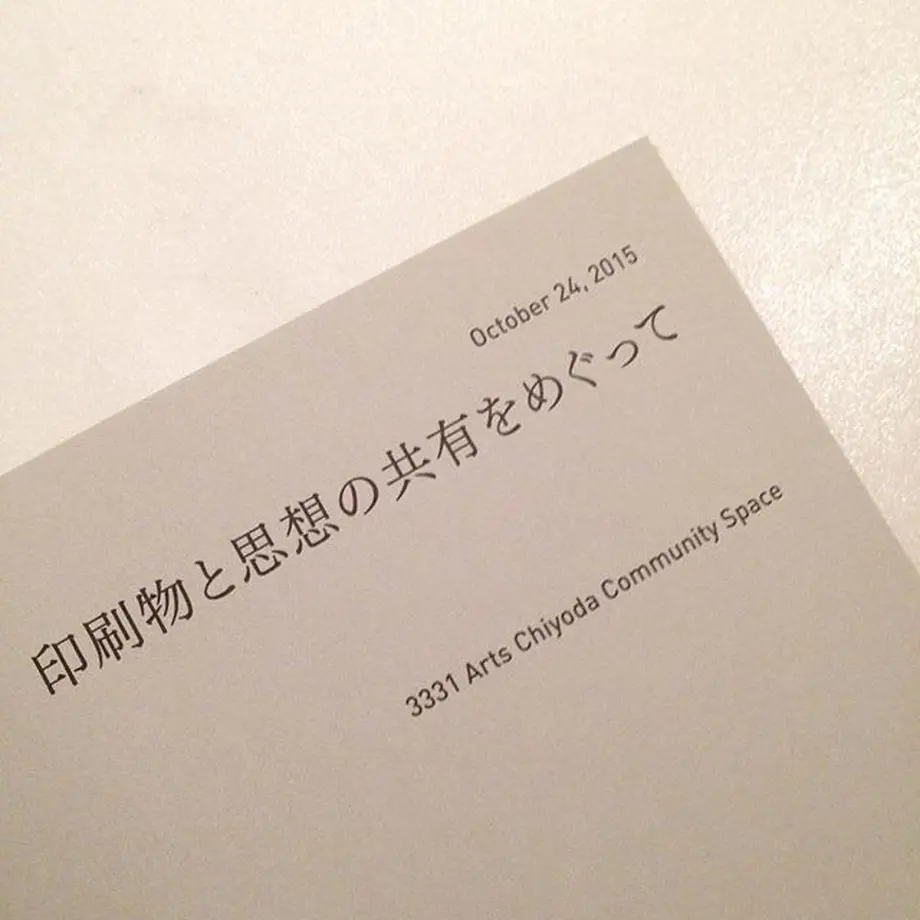 October 24, 2015
印刷物と思想の共有をめぐって
3331 Arts Chiyoda Community Space